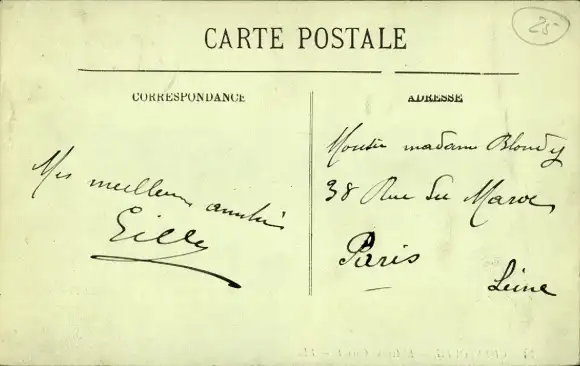 25
CARTE POSTALE
CORRESPONDANCE
ADRESSE
Mes meilleurs amitiés
Gilly
madame Blondy
38 Rue du Maroc
Paris
Seine